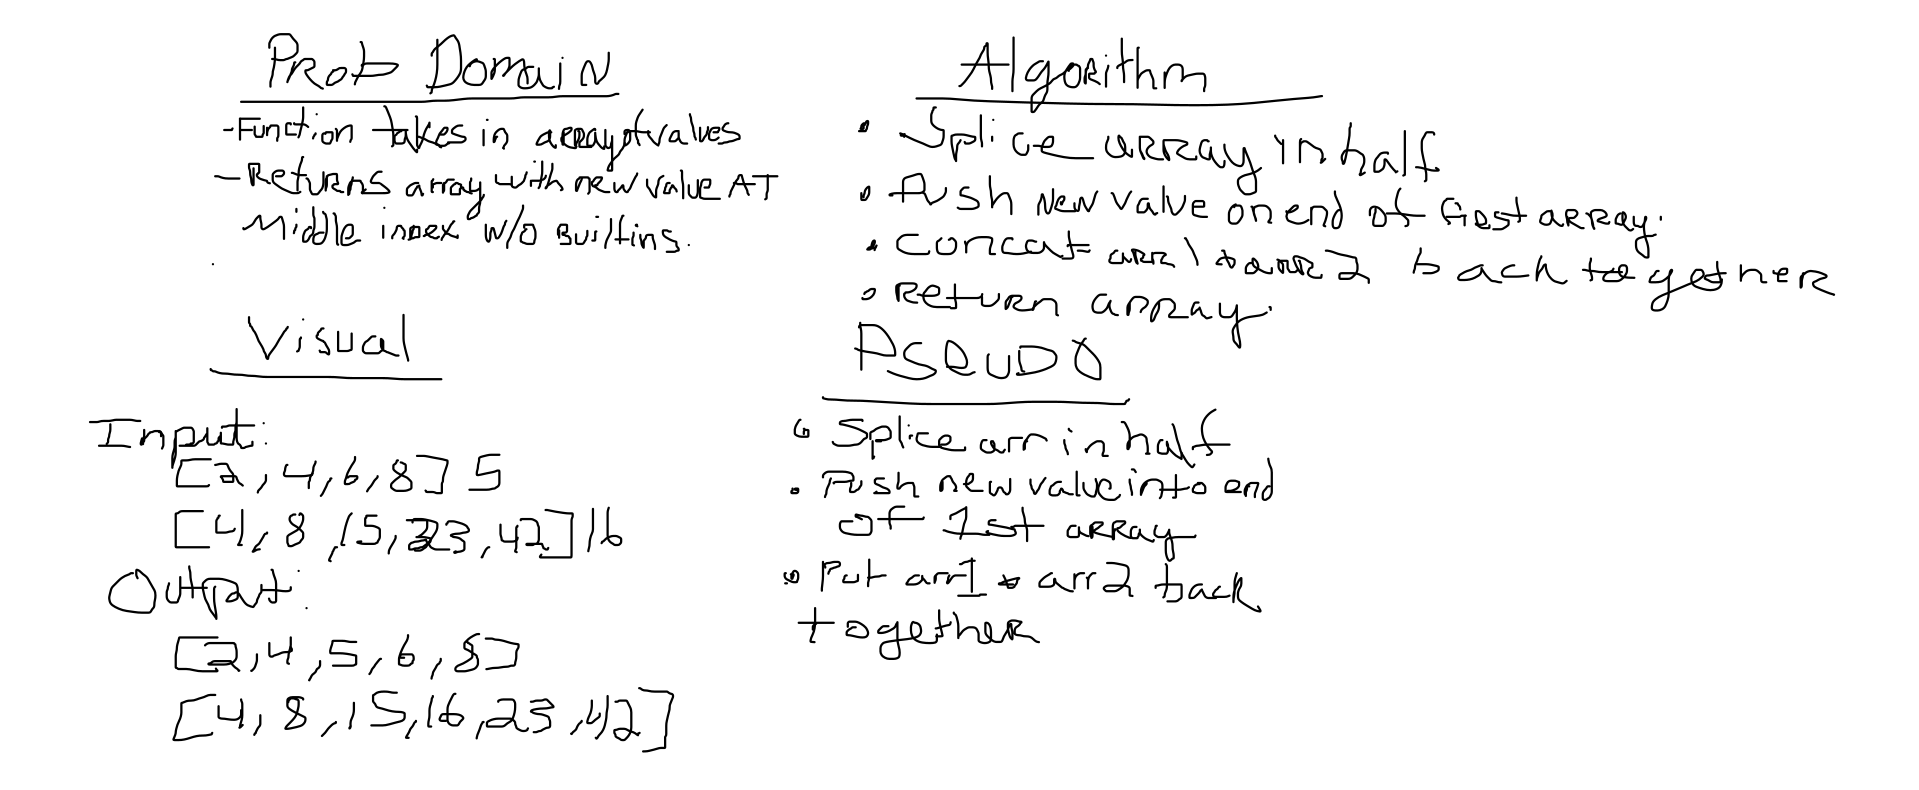 Prob Domain
-Function takes in array of values
-Returns array with new value AT
Middle index w/o Builtins.
Visual
Input:
[2, 4, 6, 8] 5
[4, 8, 15, 23, 42] 16
Output:
[2, 4, 5, 6, 8]
[4, 8, 15, 16, 23, 42]
Algorithm
• Splice array in half
• Push New value on end of first array.
• Concat arr1 to arr2 back together
• Return array.
PSEUDO
• Splice arr in half
• Push new value into end
of 1st array
• Put arr1 & arr2 back
together